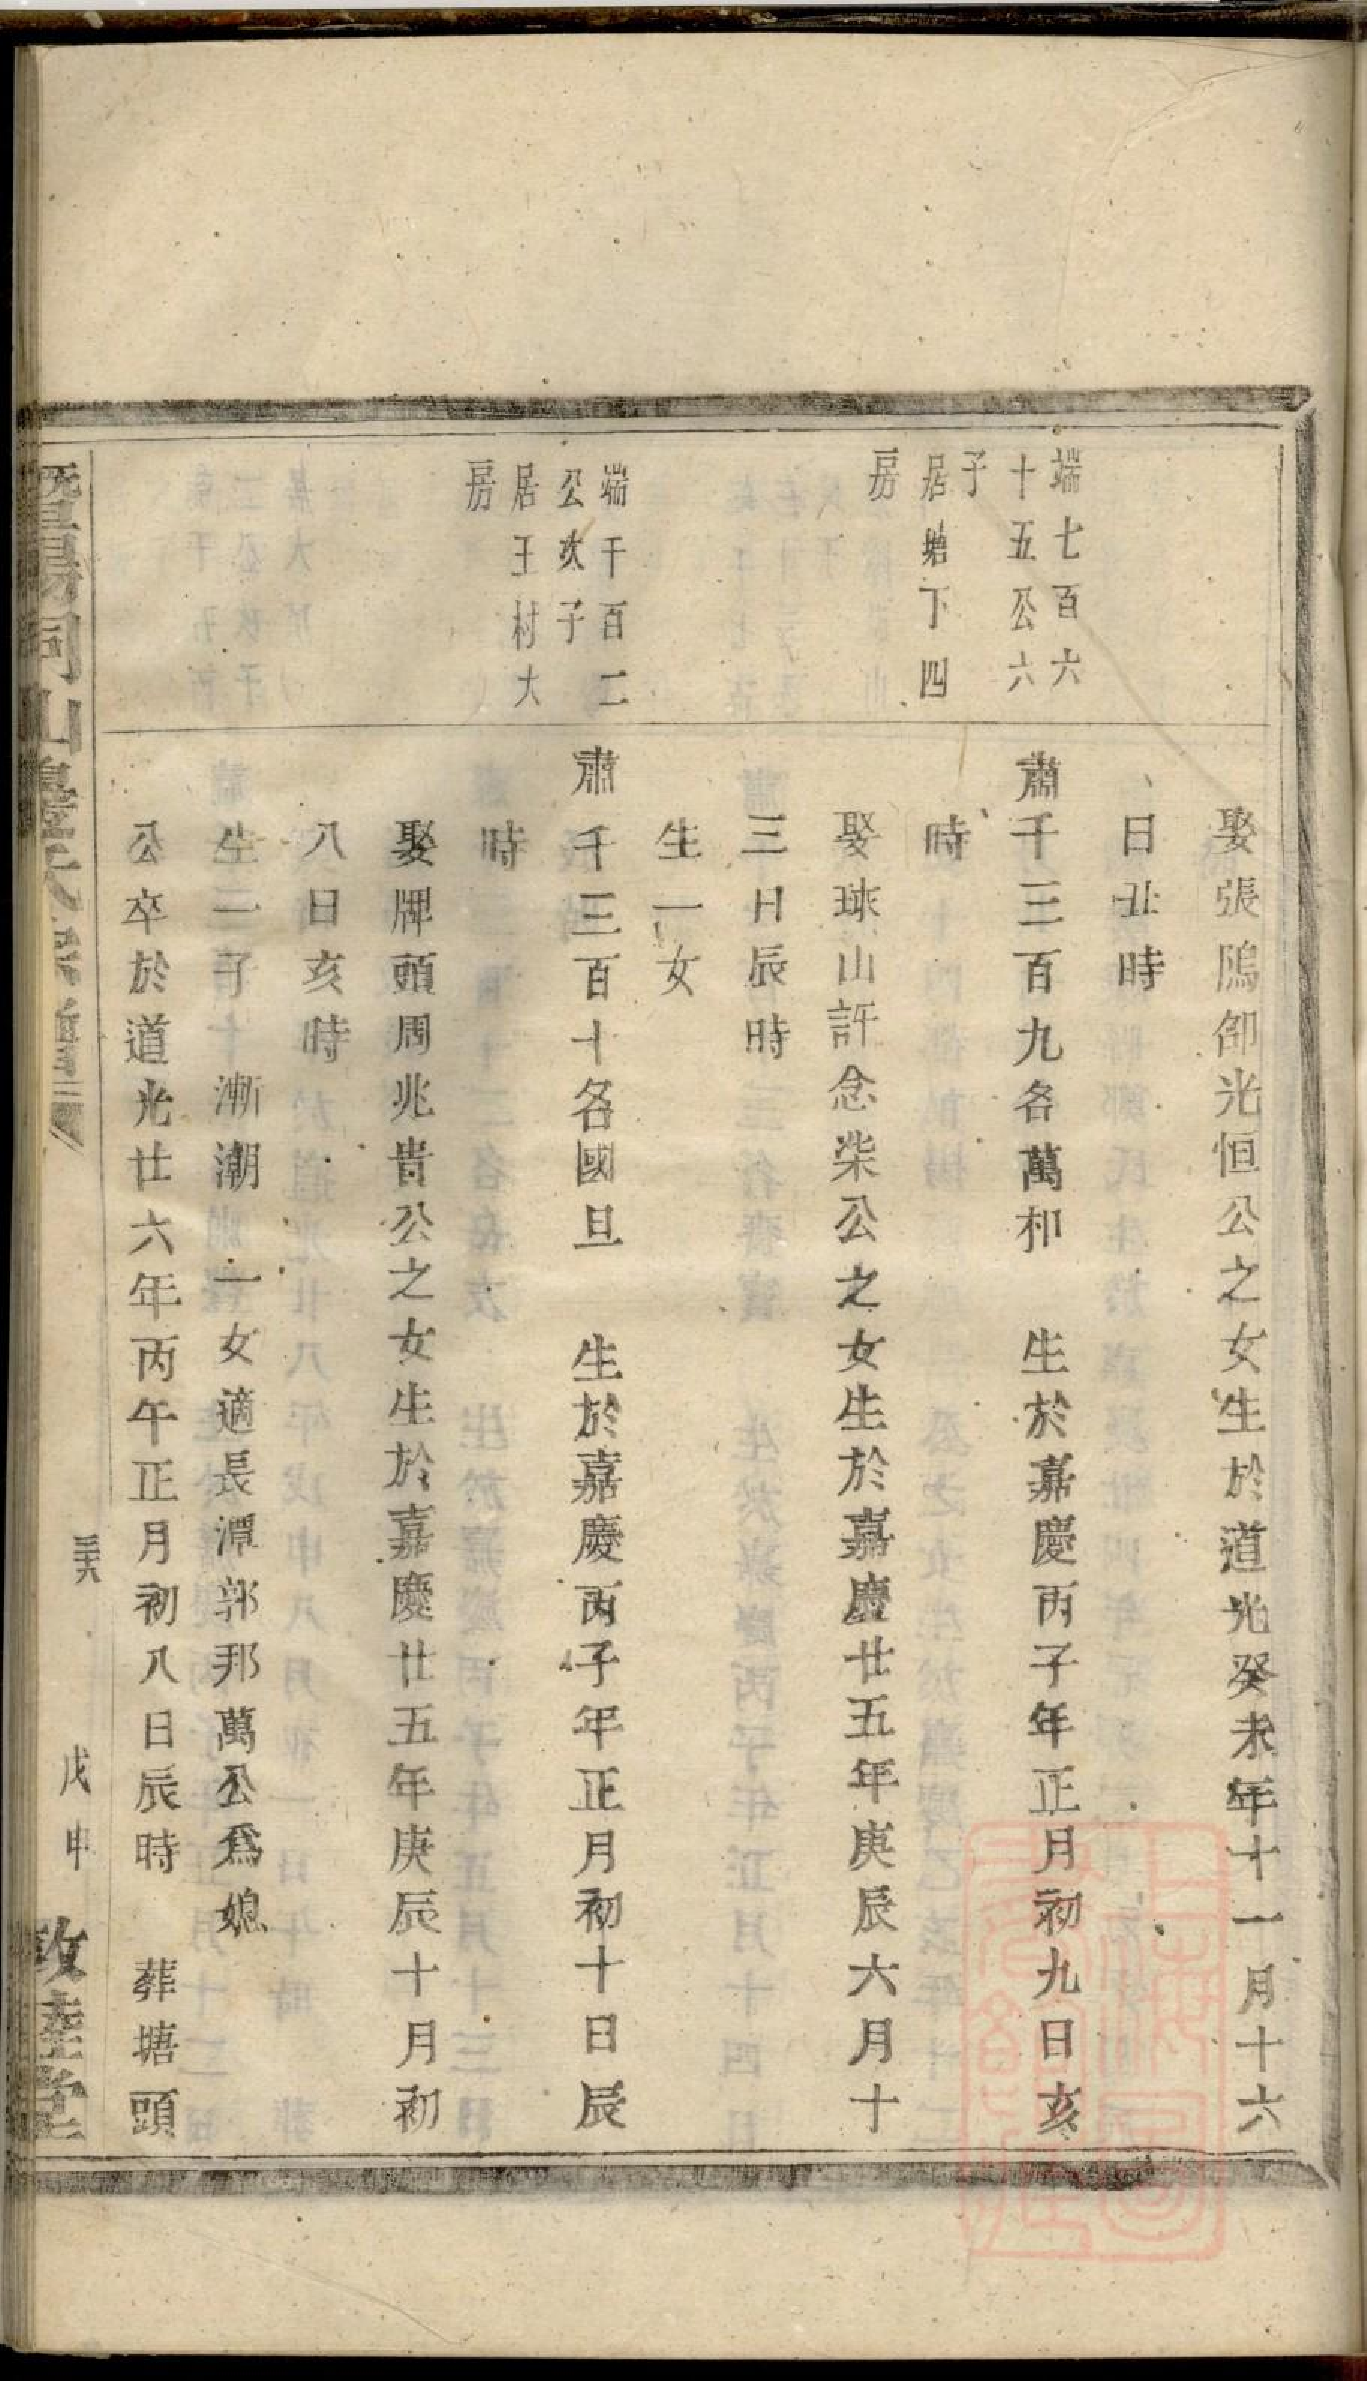 娶張隖郃光恒公之女生於道光癸未年十一月十六
日丑時
端七百六
十五公六
子
居塘下四
房
肅千三百九名萬枊 生於嘉慶丙子年正月初九日亥
時
娶琜山許念柴公之女生於嘉慶廿五年庚辰六月十
三日辰時
生一女
端千百二
公次子
居王村大
房
肅千三百十名國旦 生於嘉慶丙子年正月初十日辰
時
娶牌頭周兆貴公之女生於嘉慶廿五年庚辰十月初
八日亥時
生二子 漸潮 一女適長潭郭邦萬公爲媳
公卒於道光廿六年丙午正月初八日辰時 葬塘頭
暨陽同山邊氏宗譜
戊申
敦睦堂